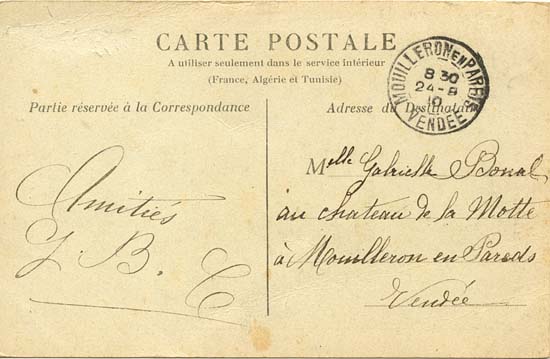 CARTE POSTALE
A utiliser seulement dans le service intérieur
(France, Algérie et Tunisie)
MOUILLERON EN PAREDS
8 30
24-8
10
VENDÉE
Partie réservée à la Correspondance
Adresse du Destinataire
Melle Gabrielle Bonal
au chateau de la Motte
à Mouilleron en Pareds
Vendée
Amitiés
J. B. C